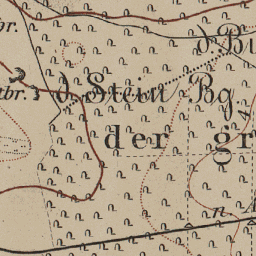 br.
d. Bu
tbr.
d. Stein Bg
der gr
n A